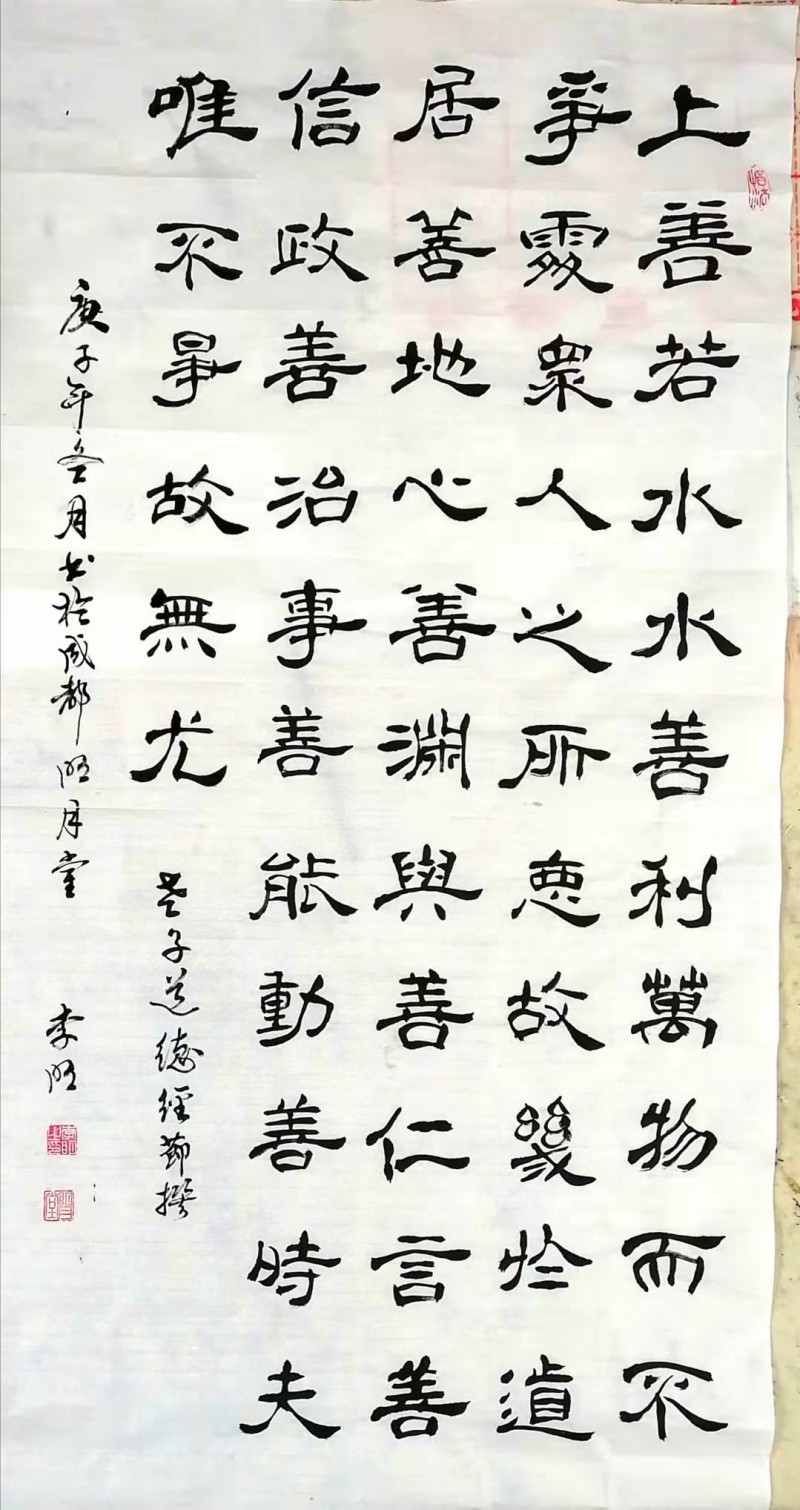 上善若水水善利萬物而不
爭處衆人之所惡故幾於道
居善地心善淵與善仁言善
信政善治事善能動善時夫
唯不爭故無尤
老子道德經節撰
庚子年冬月书於成都明月堂
李明